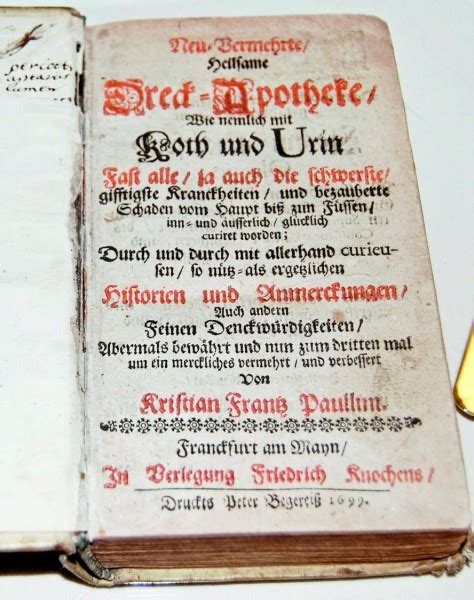 Neu-Vermehrte/
Heilsame
Dreck-Apotheke/
Wie nemlich mit
Koth und Urin
Fast alle/ ja auch die schwerste/
gifftigste Kranckheiten/ und bezauberte
Schaden vom Haupt biß zum Füssen/
inn- und äusserlich/ glücklich
curiret worden;
Durch und durch mit allerhand curieu-
sen/ so nütz- als ergetzlichen
Historien und Anmerckungen/
Auch andern
Feinen Denckwürdigkeiten/
Abermals bewährt und nun zum dritten mal
um ein merckliches vermehrt/ und verbessert
Von
Kristian Frantz Paullini.
Franckfurt am Mayn/
In Verlegung Friedrich Knochens/
Druckts Peter Begereiß 1699.